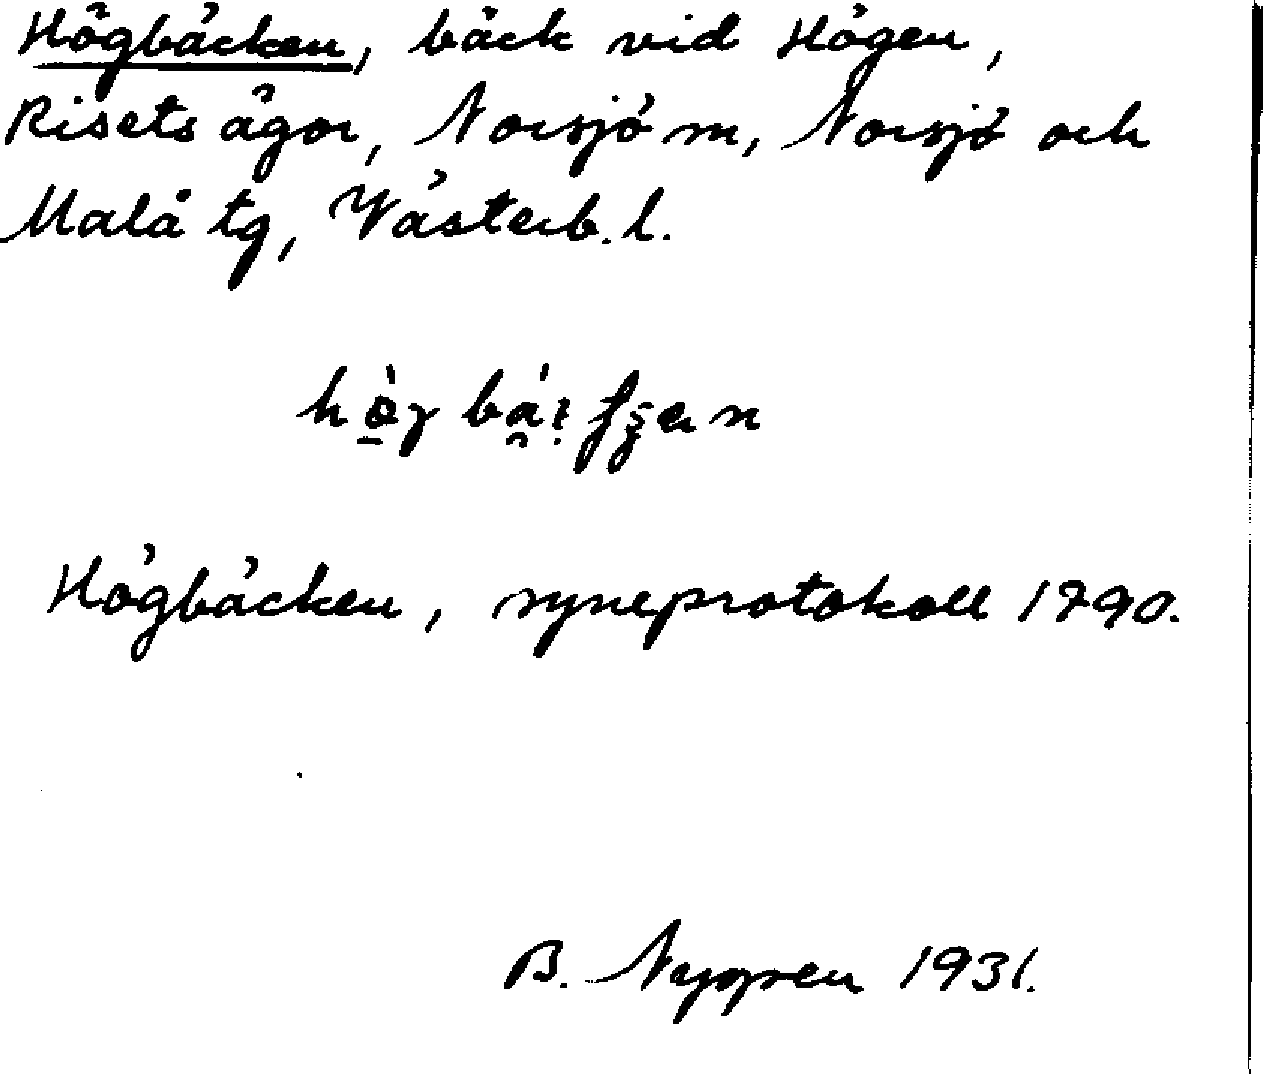 Högbäcken, bäck vid Högen,
Risets ägor, Norsjö m, Norsjö och
Malå tg, Västerb. l.
Högbäcken, syneprotokoll 1790.
B. Nygren 1931.